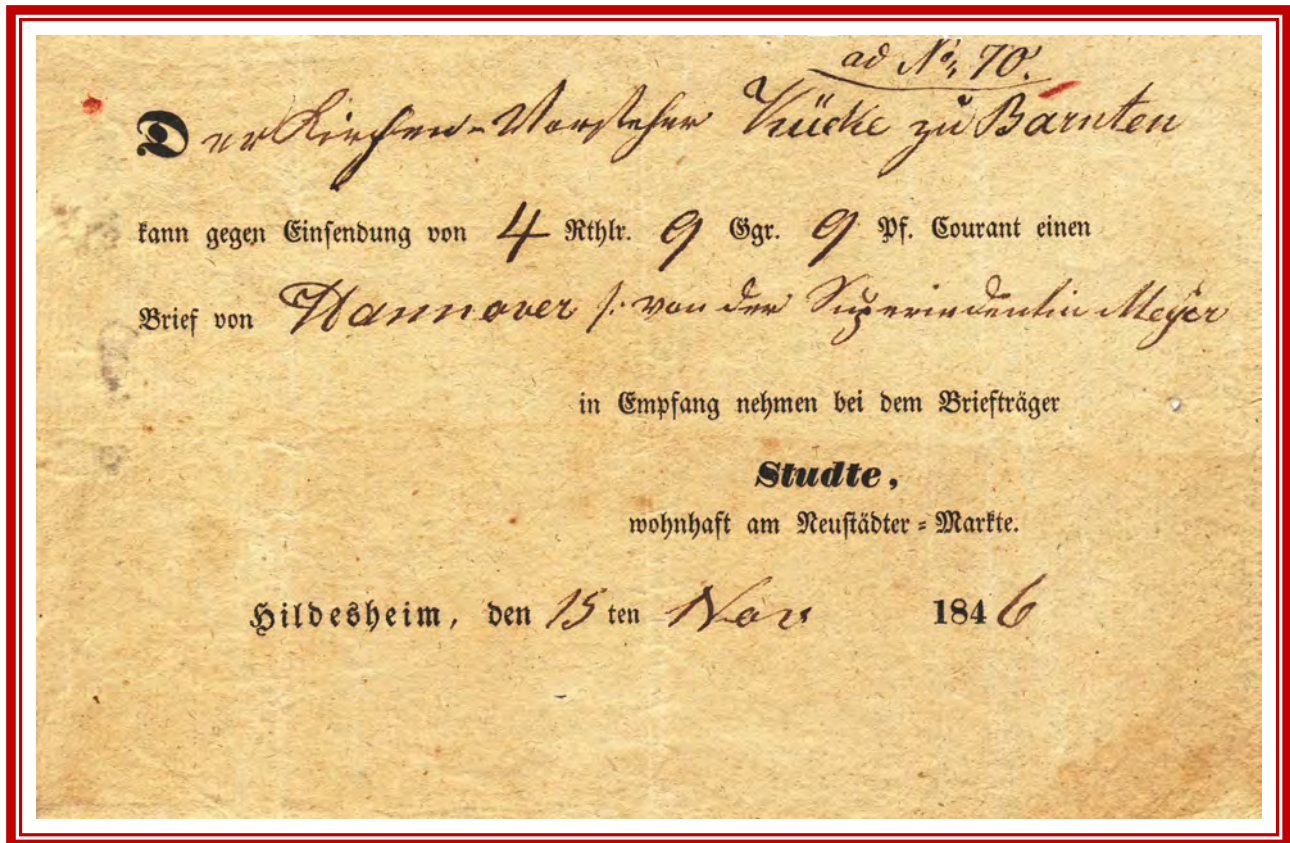 ad No. 70.
Der Kirchen-Vorsteher Kücke zu Barnten
kann gegen Einsendung von 4 Rthlr. 9 Ggr. 9 Pf. Courant einen
Brief von Hannover /: von der Superindentin Meyer
in Empfang nehmen bei dem Briefträger
Studte,
wohnhaft am Neustädter-Markte.
Hildesheim, den 15 ten Nov 1846